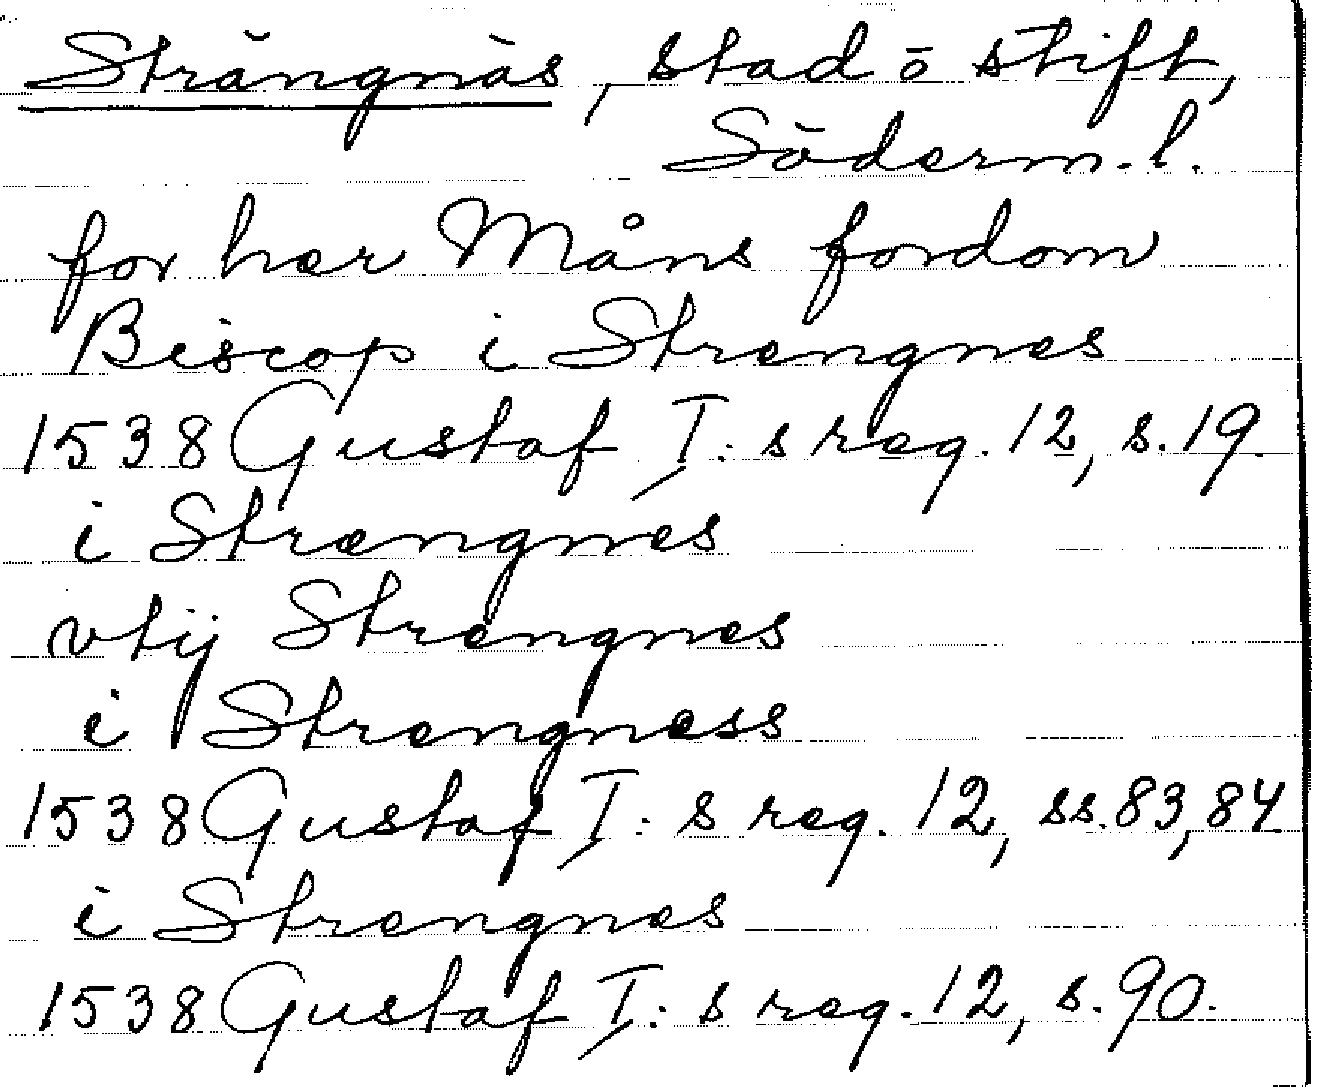 Strängnäs, stad ō stift,
Söderm.l.
for her Måns fordom
Biscop i Strengnes
1538 Gustaf I:s reg. 12, s. 19.
i Strengnes
vtij Strengnes
i Strengness
1538 Gustaf I:s reg. 12, ss. 83, 84
i Strengnes
1538 Gustaf I:s reg. 12, s. 90.